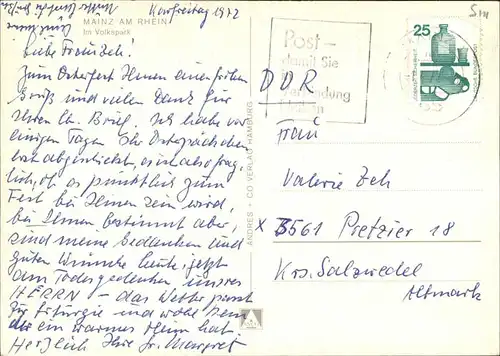 Karfreitag 1972
MAINZ AM RHEIN
Im Volkspark
Liebe Frau Zeh!
Zum Osterfest Ihnen einen frohen
Gruß und vielen Dank für
Ihren lb. Brief. Ich habe vor
einigen Tagen Ihr Osterpäckchen
erst abgeschickt, es ist also frag-
lich, ob es pünktlich zum
Fest bei Ihnen sein wird,
bei Ihnen bestimmt aber,
sind meine Gedenken und
guten Wünsche heute, jetzt
am Todesgedenken unseres
HERRN – das Wetter passt
zur Liturgie und wohl dem
der ein warmes Heim hat
Herzlich Ihre Sr. Margret
ANDRES + CO VERLAG HAMBURG
Post –
damit Sie
Verbindung
DDR
25
Frau
Valerie Zeh
X 3561 Pretzier 18
Krs. Salzwedel
Altmark